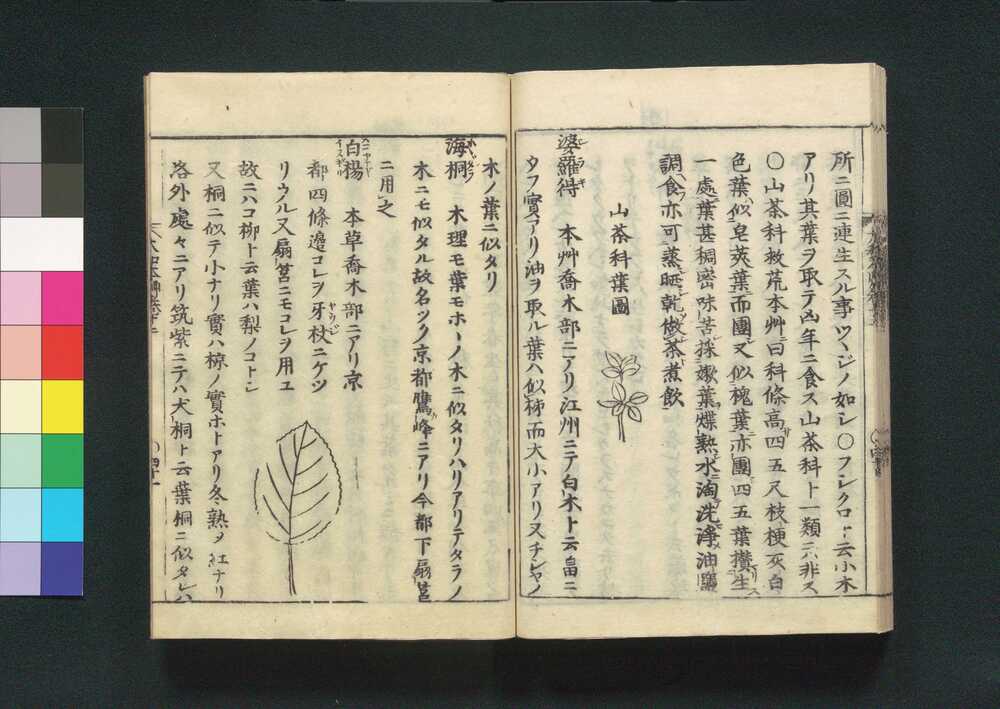 所ニ圓ニ連生スル事ツヽジノ如シ〇フシクロト云小木
アリ其葉ヲ取テ凶年ニ食ス山茶科ト一類ニハ非ス
〇山茶科救荒本艸ニ曰科條高サ四五尺枝梗灰白
色葉似皂莢葉而團又似槐葉亦團四五葉攅生
一處葉甚稠密味苦採嫩葉煠熟水淘洗浄油鹽
調食亦可蒸晒乾做茶煮飲
山茶科葉圖
婆羅得 本艸喬木部ニアリ江州ニテ白木ト云畠ニ
タフ實アリ油ヲ取ル葉ハ似柿而大小アリ又チシャノ
木ノ葉ニ似タリ
海桐 木理モ葉モホヽノ木ニ似タリハリアリテタラノ
木ニモ似タル故名ツク京都鷹峰ニアリ今都下扇筥
ニ用之
白楊 本草喬木部ニアリ京
都四條邊コレヲ牙杖ニケツ
リウル又扇筥ニモコレヲ用ユ
故ニハコ柳ト云葉ハ梨ノコトシ
又桐ニ似テ小ナリ實ハ椋ノ實ホトアリ冬熟メ紅ナリ
洛外處々ニアリ筑紫ニテハ犬桐ト云葉桐ニ似タレハ
四十一